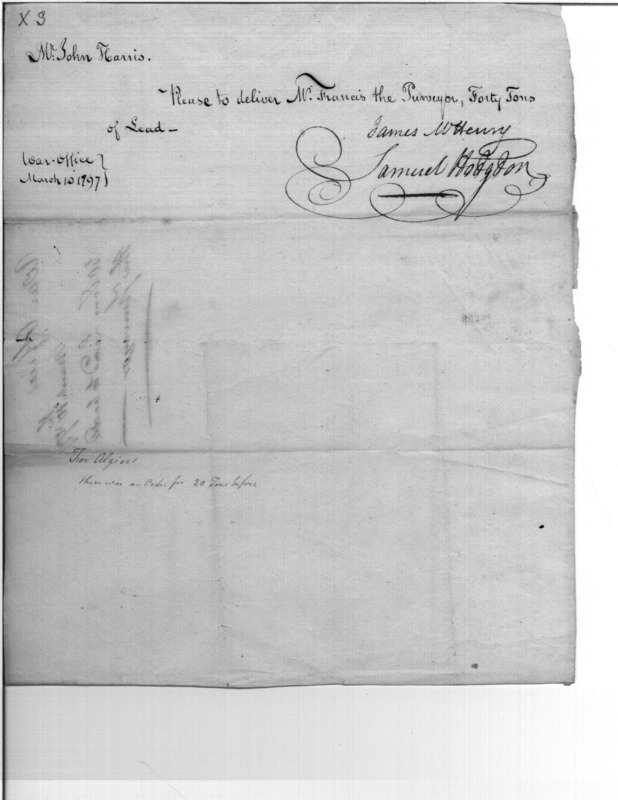 X 3
Mr. John Harris.
Please to deliver Mr. Francis the Purveyor, Forty Tons
of Lead—
James McHenry
War-Office
March 10 1797
Samuel Hodgdon
For Algiers
there was an Order for 20 Tons before